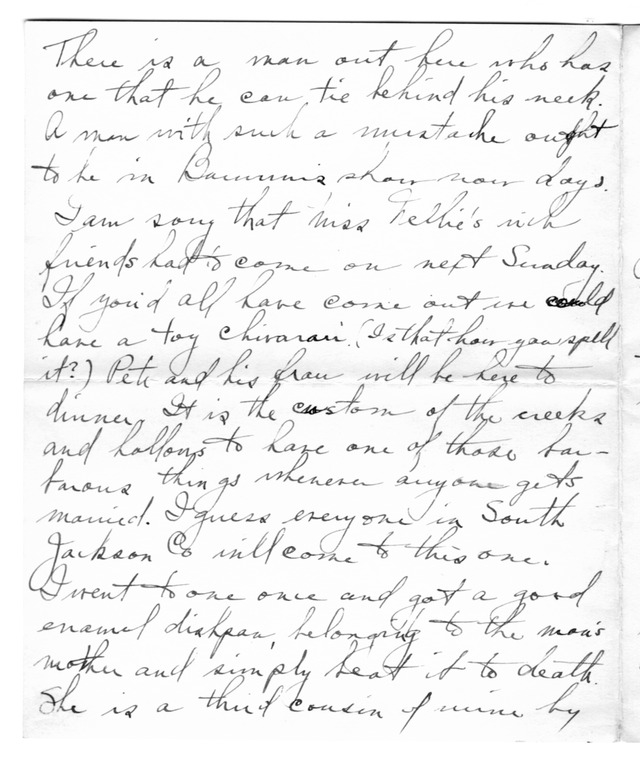 There is a man out here who has
one that he can tie behind his neck.
A man with such a mustache ought
to be in Barnums show now days.
I am sorry that Miss Nellie's rich
friends had to come on next Sunday.
If you'd all have come out we could
have a toy chivarari. (Is that how you spell
it?) Pete and his frau will be here to
dinner. It is the custom of the creeks
and hollows to have one of those bar-
barous things whenever anyone gets
married. I guess everyone in South
Jackson Co will come to this one.
I went to one once and got a good
enamel dishpan, belonging to the man's
mother and simply beat it to death.
She is a third cousin of mine by